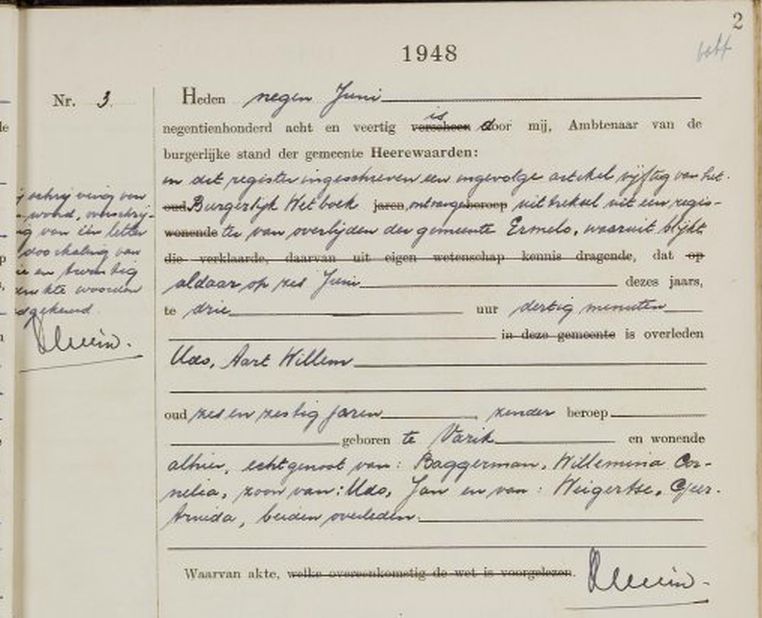 2
1948
Nr. 3.
Heden negen Juni
is
negentienhonderd acht en veertig verscheen door mij, Ambtenaar van de
burgerlijke stand der gemeente Heerewaarden:
in dit register ingeschreven een ingevolge artikel vijftig van het
oud Burgerlijk Wetboek jaren, ontvangen beroep uittreksel uit een regis-
wonende ter van overlijden der gemeente Ermelo, waaruit blijkt,
die verklaarde, daarvan uit eigen wetenschap kennis dragende, dat op
aldaar op zes Juni dezes jaars,
te drie uur dertig minuten
in deze gemeente is overleden
Udo, Aart Willem
oud zes en zestig jaren, zonder beroep
geboren te Varik en wonende
alhier, echtgenoot van: Baggerman, Willemina Cor-
nelia, zoon van: Udo, Jan en van: Weigertse, Geer-
truida, beiden overleden.
Waarvan akte, welke overeenkomstig de wet is voorgelezen.
schrijving van
woord, overschrij-
van één letter
doorhaling van
en twintig
woorden